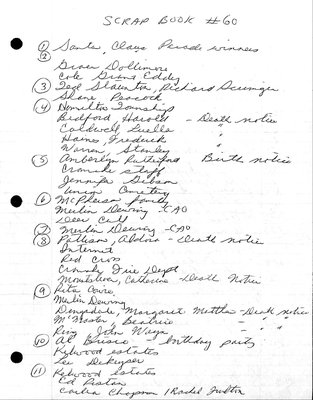 SCRAP BOOK #60
① Santa Claus Parade winners
②
Grace Dollimore
Cole Eddey
③ Ted Staunton, Richard Scrimger
Shane Peacock
④ Hamilton Township
Bedford, Harold - Death notice
Caldwell, Luella "
Haine, Frederick "
Warren, Stanley "
⑤ Amberlyn Rutherford Birth notice
Cramahe staff
Jennifer Gibson
Union Cemetery
⑥ McPherson family
Merlin Dewing - CAO
Deer Call
⑦ Merlin Dewing - CAO
⑧ Pattison, - Death notice
Internet
Red Cross
Cramahe Fire Dept
Catherine - Death Notice
⑨ Rita
Merlin Dewing
Margaret Mettha - Death notice
McMaster, Beatrice - " "
John Wayne - " "
⑩ Al Brisco - birthday party
Kelwood estates
Lee Dekeyser
⑪ Kelwood estates
Ed Pestun
Chapman / Rachel Fulton